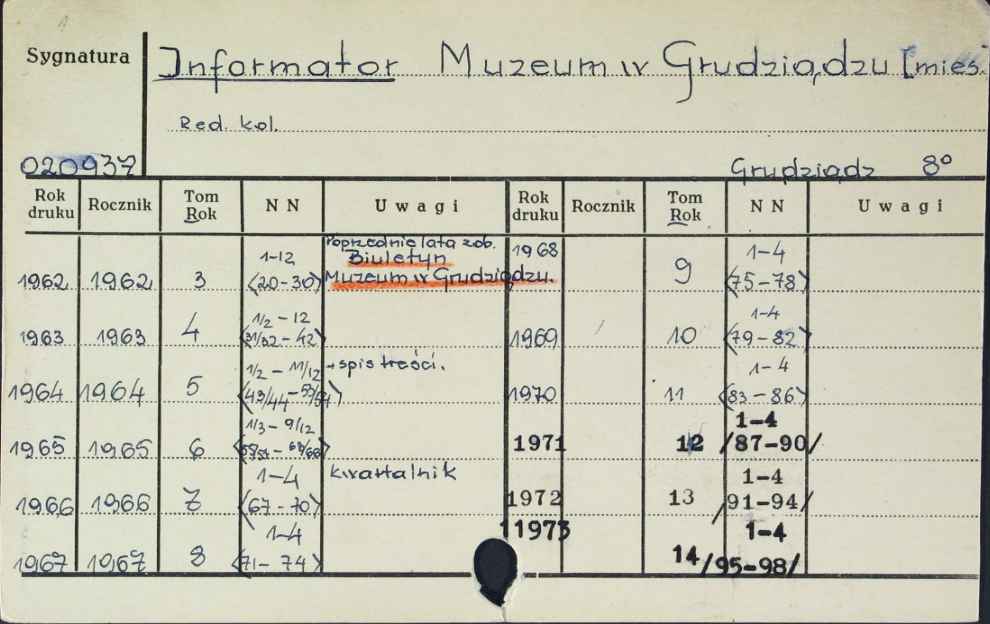 1
Sygnatura
Informator Muzeum w Grudziądzu [mies.
Red. kol.
020937
Grudziądz 8°
Rok druku Rocznik Tom Rok NN Uwagi Rok druku Rocznik Tom Rok NN Uwagi
1962 1962 3 1-12 <20-30> Poprzednie lata zob. Biuletyn Muzeum w Grudziądzu.
1963 1963 4 1/2 - 12 <31/32 - 42>
1964 1964 5 1/2 - 11/12 <43/44 - 53/54> + spis treści.
1965 1965 6 1/3 - 9/12
1966 1966 7 1-4 <67-70> kwartalnik
1967 1967 8 1-4 <71-74>
1968 9 1-4 <75-78>
1969 10 1-4 <79-82>
1970 11 1-4 <83-86>
1971 12 1-4 /87-90/
1972 13 1-4 /91-94/
11973 14 1-4 /95-98/